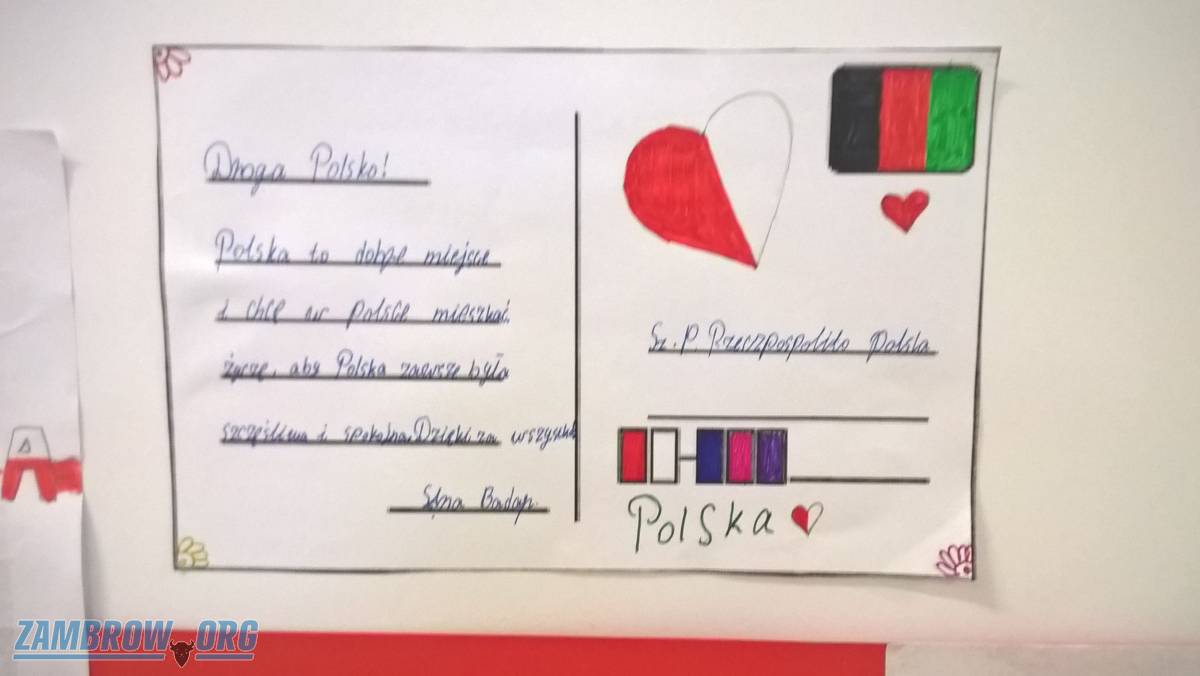 Droga Polsko!
Polska to dobre miejsce
i chcę w Polsce mieszkać.
życzę, aby Polska zawsze była
szczęśliwa i spokojna. Dzięki za wszystko
Badap.
Sz. P. Rzeczpospolita Polska
Polska
ZAMBROW.ORG